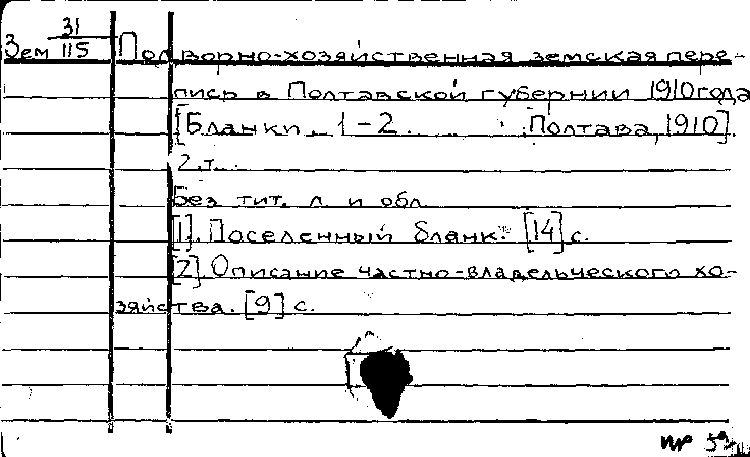 Зем 31/115 Подворно-хозяйственная земская пере-
пись в Полтавской губернии 1910 года
[Бланки. 1-2. Полтава, 1910].
2 т.
Без тит. л. и обл.
[1]. Поселенный бланк. [14] с.
[2]. Описание частно-владельческого хо-
зяйства. [9] с.